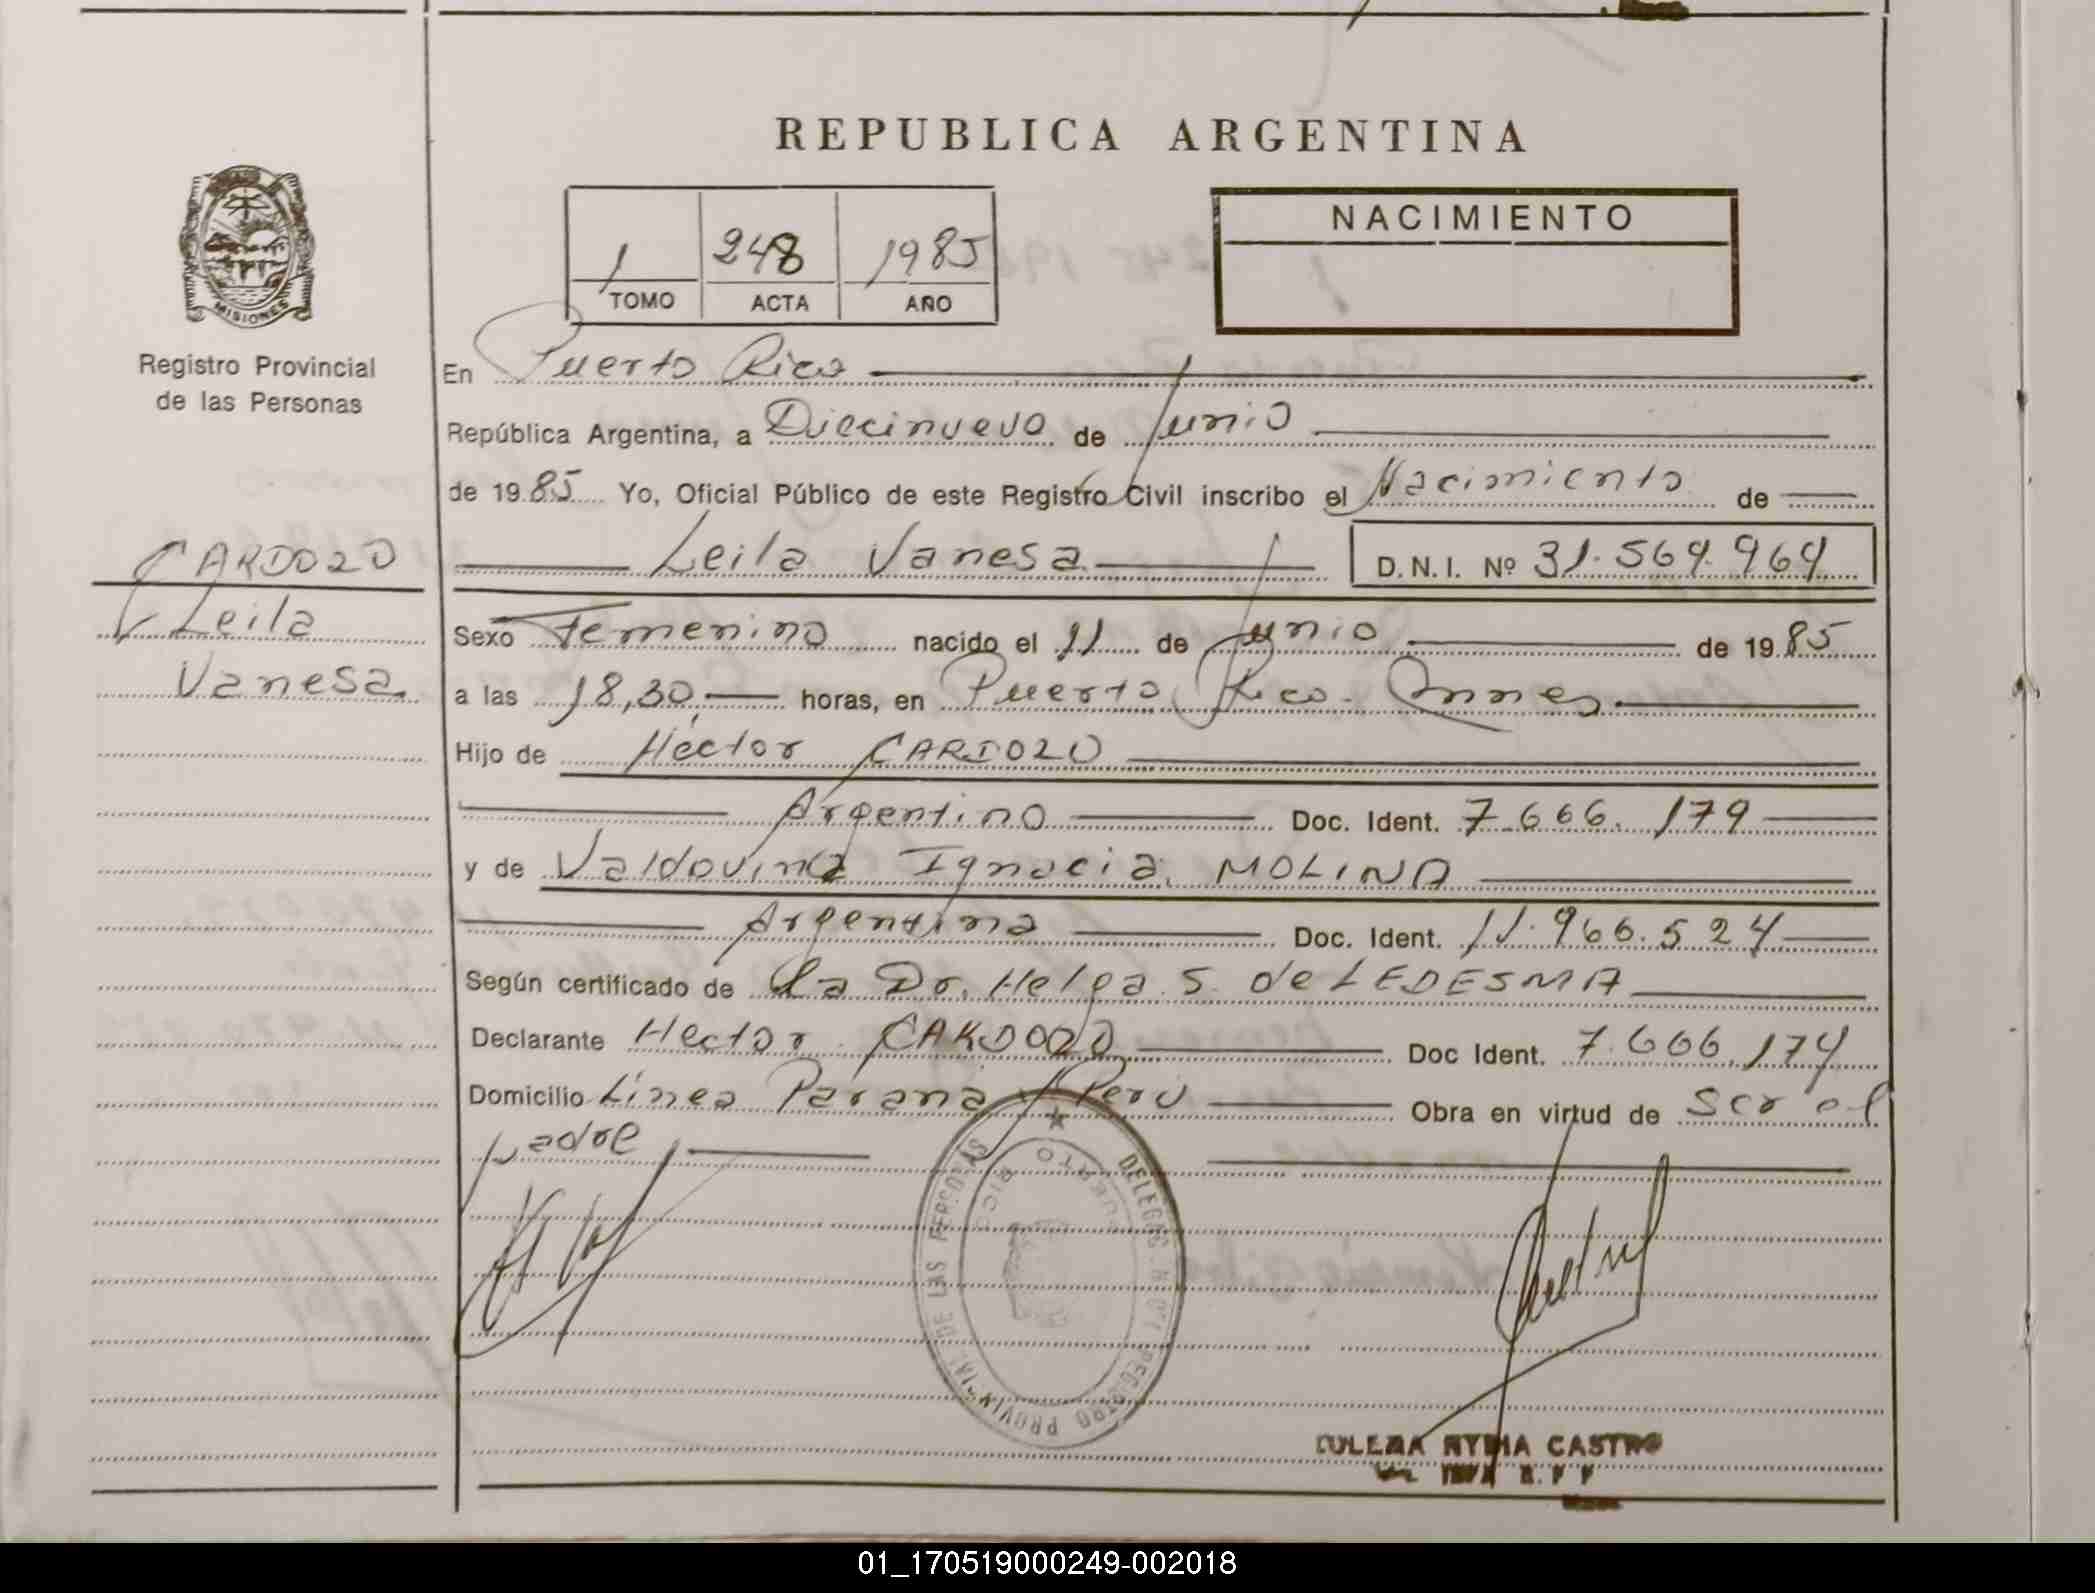 REPUBLICA ARGENTINA
1 248 1985
TOMO ACTA AÑO
NACIMIENTO
MISIONES
Registro Provincial
de las Personas
CARDOZO
Leila
Vanesa
En Puerto Rico
República Argentina, a Diecinueve de Junio
de 1985 Yo, Oficial Público de este Registro Civil inscribo el Nacimiento de
Leila Vanesa D.N.I. Nº 31.564.964
Sexo Femenino nacido el 11 de Junio de 1985
a las 18,30 horas, en Puerto Rico.
Hijo de Héctor CARDOZO
Argentino Doc. Ident. 7.666.179
y de Valdovina Ignacia MOLINA
Argentina Doc. Ident. 11.966.524
Según certificado de la Dr. Helga S. de LEDESMA
Declarante Hector CARDOZO Doc Ident. 7.666.174
Domicilio Línea Paraná y Perú Obra en virtud de Ser el
padre
DELEGAC. DEL REGISTRO PROVINCIAL DE LAS PERSONAS
PUERTO RICO
CASTRO
01_170519000249-002018